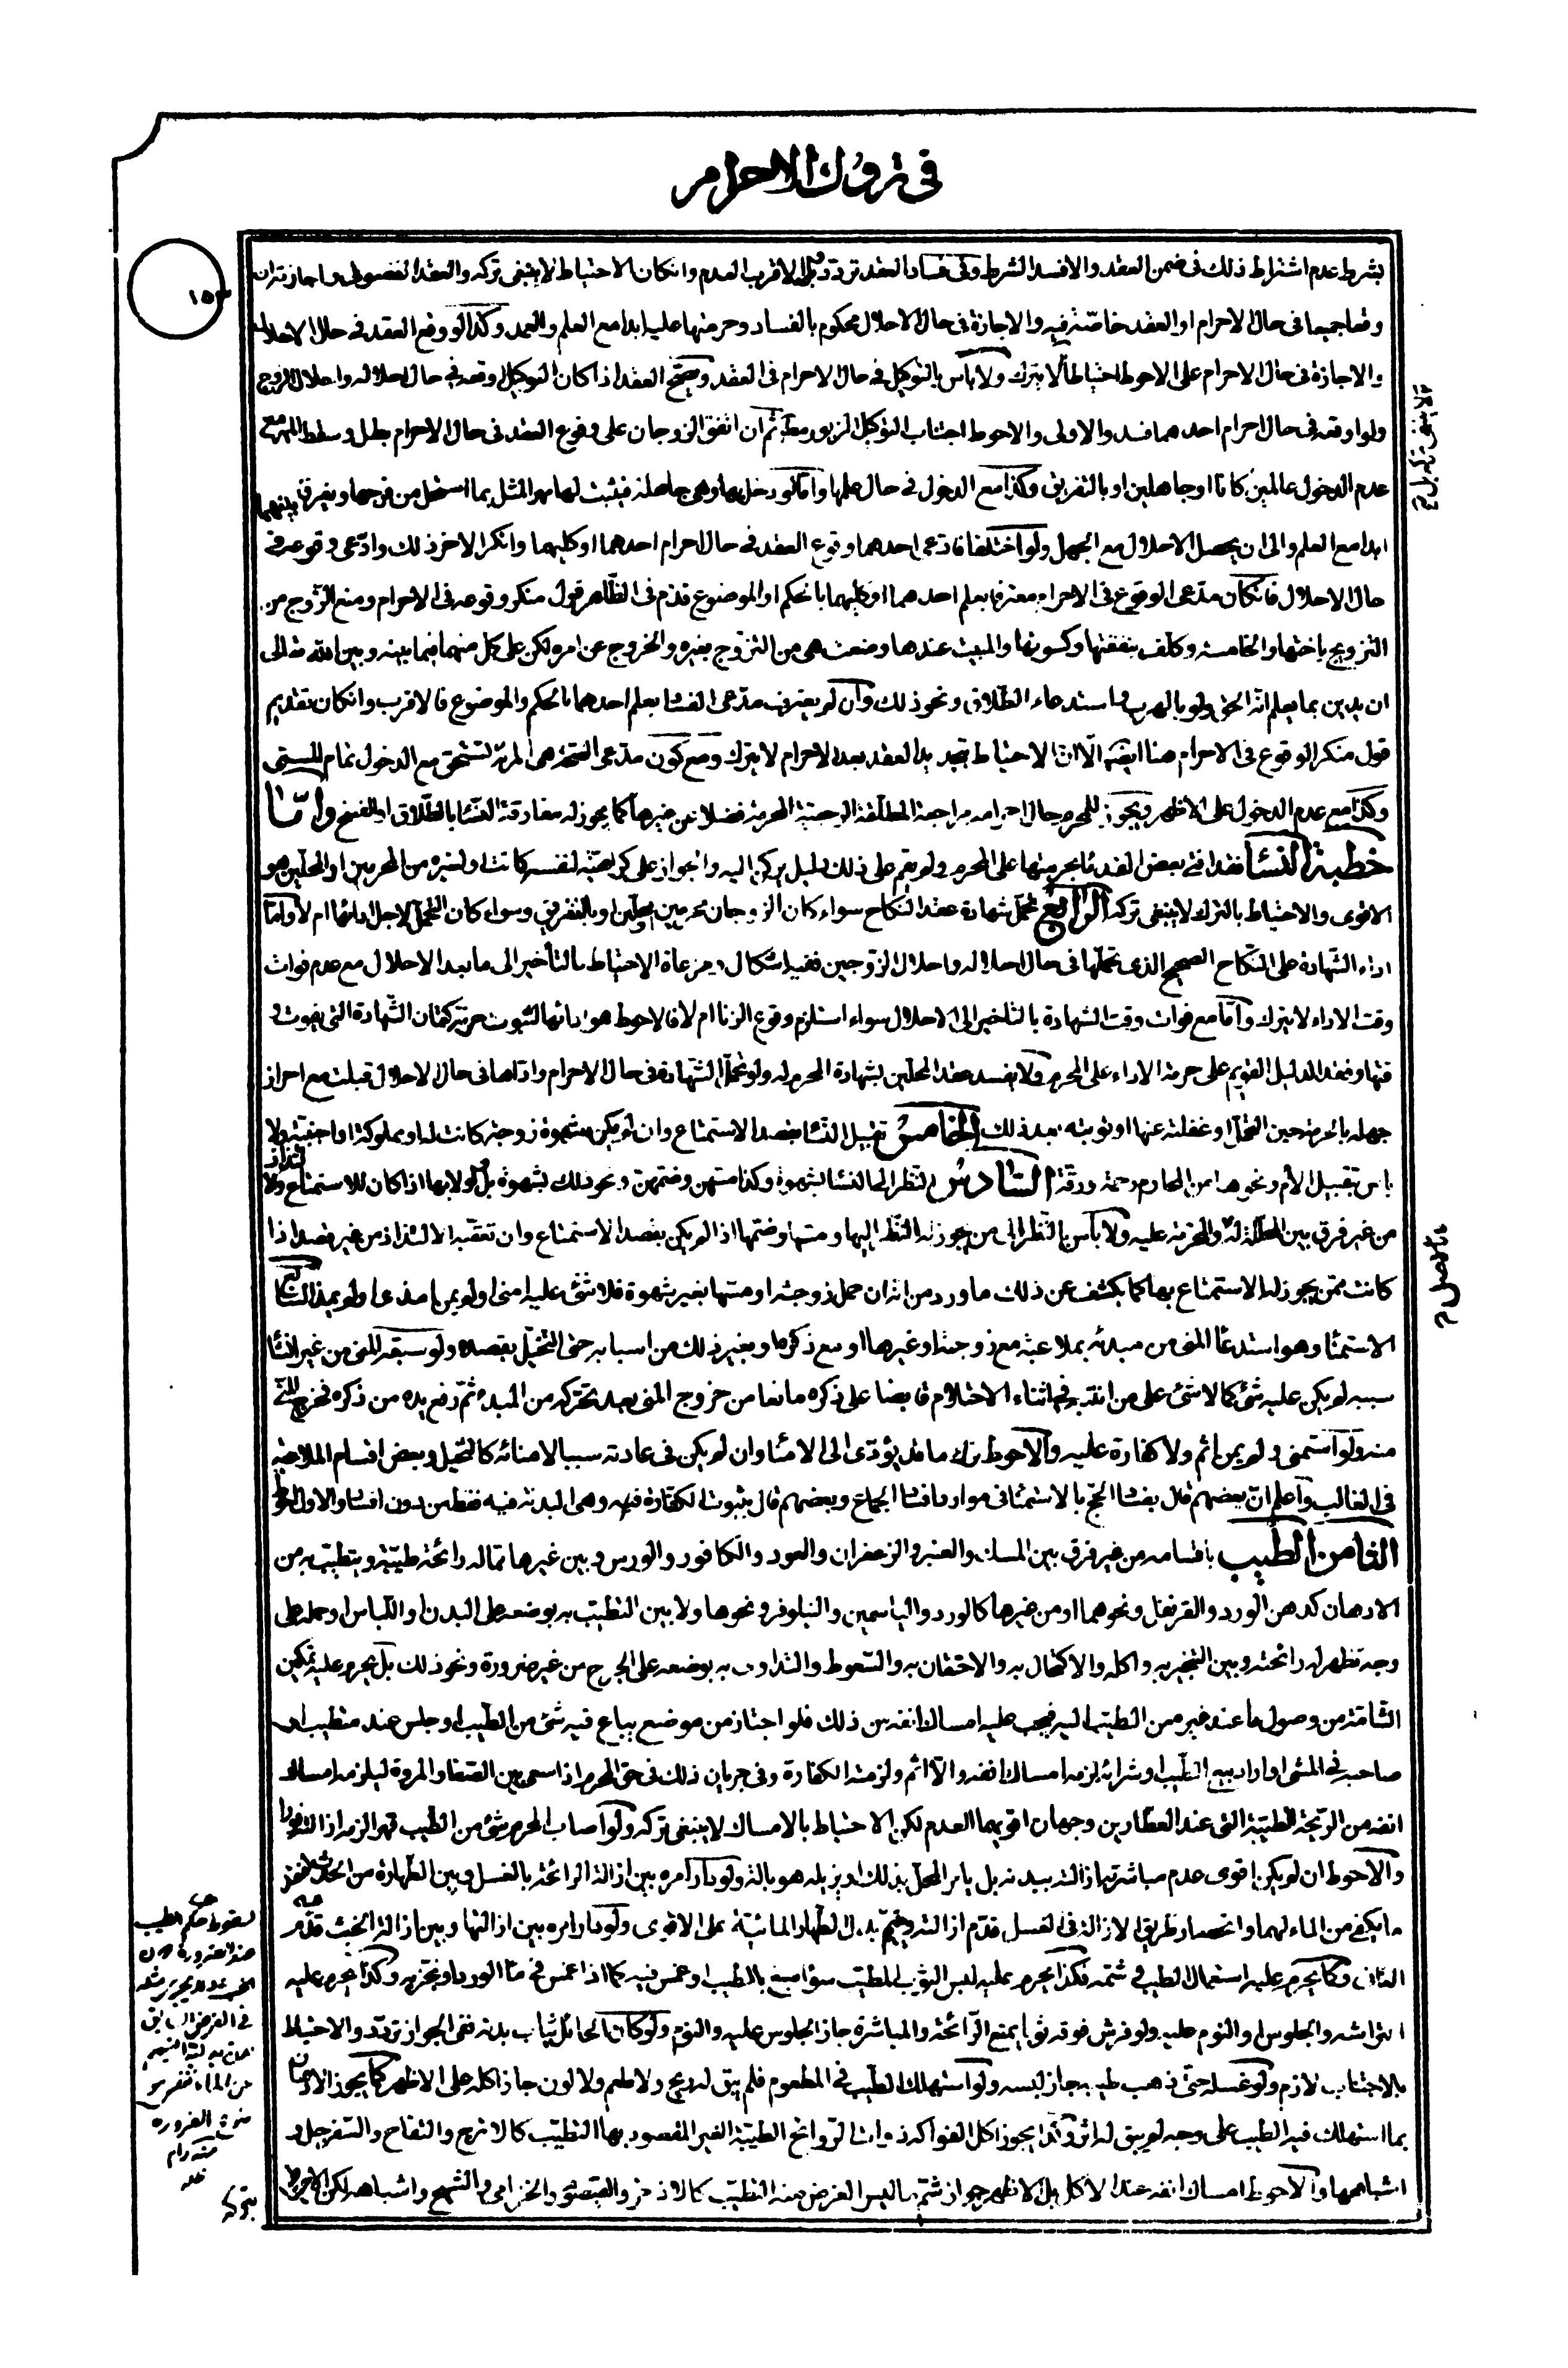 في تروك الاحرام
١٥٣
بشرط عدم اشتراط ذلك فى ضمن العقد والا فسد الشرط وفى فساد العقد تردد بل الاقرب العدم وانكان الاحتياط لا ينبغى تركه والعقد الفضولى واجازته ان
وقعا جميعا فى حال الاحرام او العقد خاصّة فيه والاجازة فى حال الاحلال محكوم بالفساد وحرمتها عليه ابدا مع العلم والعمد وكذا لو وقع العقد فى حال الاحلال
والاجازة فى حال الاحرام على الاحوط احتياطاً لا يترك ولا باس بالتوكيل فى حال الاحرام فى العقد ويصحّ العقد اذا كان التوكيل اوقعه فى حال احلاله واحلال الزوج
ولو اوقعه فى حال احرام احدهما فسد والاولى والاحوط اجتناب التوكيل المزبور مطلقا ثم ان اتفق الزوجان على وقوع العقد فى حال الاحرام بطل وسقط المهر مع
عدم الدخول عالمين كانا او جاهلين او بالتفريق وكذا مع الدخول فى حال علمها وامّا لو دخل بها وهى جاهلة فيثبت لها مهر المثل بما استحل من فرجها ويفرق بينهما
ابدا مع العلم والى ان يحصل الاحلال مع الجهل ولو اختلفا فادعى احدهما وقوع العقد فى حال احرام احدهما او كليهما وانكر الاخر ذلك وادّعى وقوعه فى
حال الاحلال فانكان مدّعى الوقوع فى الاحرام معترفا بعلم احدهما او كليهما بالحكم او الموضوع قدّم فى الظّاهر قول منكر وقوعه فى الاحرام ومنع الزّوج من
التزويج باختها والخامسة وكلّف بنفقتها وكسوتها والمبيت عندها ومنعت هى من التزوّج بغيره والخروج عن امره لكن على كل منهما فيما بينه وبين اللّه تعالى
ان يدين بما يعلم انّه الحق ولو بالهرب او استدعاء الطّلاق ونحو ذلك وان لم يعترف مدّعى الفساد بعلم احدهما بالحكم والموضوع فالاقرب وانكان تقديم
قول منكر الوقوع فى الاحرام هنا ايضا الّا انّ الاحتياط بتجديد العقد بعد الاحرام لا يترك ومع كون مدّعى الصّحة هى المرئة تستحق مع الدخول تمام المسمّى
وكذا مع عدم الدخول على الاظهر ويجوز للمحرم حال احرامه مراجعة المطلّقة الرجعيّة المحرمة فضلا عن غيرها كما يجوز له مفارقة النّساء بالطّلاق او الفسخ وامّا
خطبة النساء فقد افتى بعض الفقهاء بحرمتها على المحرم ولم يقم على ذلك دليل يركن اليه والجواز على كراهيّة لنفسه كانت او لغيره من المحرمين او المحلّين هو
الاقوى والاحتياط بالترك لا ينبغى تركه الرابع تحمّل شهادة عقد النكاح سواء كان الزوجان محرمين او محلّين او بالتفريق وسواء كان التحمّل لاجل ادائها ام لا وامّا
اداء الشّهادة على النّكاح الصحيح الذى تحمّلها فى حال احلاله واحلال الزّوجين ففيه اشكال ومراعاة الاحتياط بالتأخير الى ما بعد الاحلال مع عدم فوات
وقت الاداء لا يترك وامّا مع فوات وقت الشهادة بالتاخير الى الاحلال سواء استلزم وقوع الزنا ام لا فالاحوط هو اداؤها لثبوت حرمة كتمان الشّهادة التى يفوت
وقتها وفقد الدليل القويم على حرمة الاداء على المحرم ولا يفسد عقد المحلّين بشهادة المحرم له ولو تحمّل الشّهادة فى حال الاحرام وادّاها فى حال الاحلال قبلت مع احراز
جهله بالحرمة حين التحمّل او غفلته عنها او توبته بعد ذلك الخامس تقبيل النساء بقصد الاستمتاع وان لم يكن بشهوة زوجة كانت له او مملوكة او اجنبيّة ولا
باس بتقبيل الأم ونحوها من المحارم رحمة ورقّة السّادس النّظر الى النساء بشهوة وكذا مسّهنّ وضمّهنّ ونحو ذلك بشهوة بل ولو لا بها اذا كان للاستمتاع والالتذاذ
من غير فرق بين المحلّلة له والمحرّمة عليه ولا بأس بالنّظر الى من يجوز له النّظر اليها ومسّها وضمّها اذا لم يكن بقصد الاستمتاع وان تعقّبه الالتذاذ من غير قصد اذا
كانت ممّن يجوز له الاستمتاع بها كما يكشف عن ذلك ما ورد من انه ان حمل زوجته او مسّها بغير شهوة فلا شئ عليه امنى او لم يمن امذى او لم يمذ السّابع
الاستمناء وهو استدعاء المنى من مبدئه بملاعبة مع زوجته او غيرها او مع ذكره او بغير ذلك من اسبابه حتى التخيّل بقصده ولو سبقه المنى من غير انشاء
سببه لم يكن عليه شئ كما لا شئ على من انتبه فى اثناء الاحتلام قابضا على ذكره مانعا من خروج المنى بعد تحركه من المبدء ثمّ رفع يده من ذكره فخرج المنى
منه ولو استمنى ولم يمن اثم ولا كفارة عليه والاحوط ترك ما قد يؤدّى الى الامناء وان لم يكن فى عادته سببا لامنائه كالتخيّل وبعض اقسام الملاعبة
فى الغالب واعلم انّ بعضهم قال بفساد الحجّ بالاستمناء فى موارد افساد الجماع وبعضهم قال بثبوت الكفّارة فيه وهى البدنة فيه فقط من دون افساد والاول احوط
الثامن الطيب باقسامه من غير فرق بين المسك والعنبر والزعفران والعود والكافور والورس وبين غيرها ممّا له رائحة طيّبة ويتطيّب به من
الادهان كدهن الورد والقرنفل ونحوهما او من غيرها كالورد والياسمين والنيلوفر ونحوها ولا بين التطيّب به بوضعه على البدن او اللباس او حمله على
وجه تظهر له رائحته وبين التبخير به واكله والاكتحال به والاحتقان به والسّعوط والتداوى به بوضعه على الجرح من غير ضرورة ونحو ذلك بل يحرم عليه تمكين
الشّامّة من وصول ما عند غيره من الطيب اليه فيجب عليه امساك انفه من ذلك فلو اجتاز من موضع يباع فيه شئ من الطّيب او جلس عند متطيب او
صاحبه فى المشى او اراد بيع الطّيب او شرائه لزمه امساك انفه والّا اثم ولزمته الكفارة وفى جريان ذلك فى حق المحرم اذا سعى بين الصّفا والمروة ليلزمه امساك
انفه من الرّيحة الطيّبة التى عند العطّارين وجهان اقويهما العدم لكن الاحتياط بالامساك لا ينبغى تركه ولو اصاب المحرم شئ من الطّيب قهرا لزمه ازالته فورا
والاحوط ان لم يكن اقوى عدم مباشرته ازالته بيده بل يامر المحلّ بذلك او يزيله هو بالة ولو دار امره بين ازالة الرائحة بالغسل وبين الطّهارة من الحدث لعوز
ما يكفى من الماء لهما وانحصار طريق الازالة فى الغسل قدّم ازالته وتيمّم بدل الطّهارة المائيّة على الاقوى ولو دار امره بين ازالتها وبين ازالة الخبث قدّم
الثانى وكما يحرم عليه استعمال الطيب فى شمّه فكذا يحرم عليه لبس الثوب المطيب سواء صبغ بالطيب او غمس فيه كما اذا غمس فى ماء الورد او بخّر به وكذا يحرم عليه
افتراشه والجلوس او النّوم عليه ولو فرش فوقه ثوبا يمنع الرّائحة والمباشرة جاز الجلوس عليه والنوم ولو كان الحائل ثياب بدنه ففى الجواز تردّد والاحتياط
بالاجتناب لازم ولو غسله حتّى ذهب طيبه جاز لبسه ولو استهلك الطّيب فى المطعوم فلم يبق له ريح ولا طعم ولا لون جاز اكله على الاظهر كما يجوز الادهان
بما استهلك فيه الطيب على وجه لم يبق له اثر وكذا يجوز اكل الفواكه ذوات الرّوائح الطيّبة الغير المقصود بها التطيّب كالاترج والتفاح والسّفرجل و
اشباهها والاحوط امساك انفه عند الاكل بل الاظهر جواز شمّ ما ليس الغرض منه التطيّب كالاذخر والقيصوم والخزامى والشيح واشباهه لكن الاحوط
تركه
لسقوط حكم الطيب
عند الضرورة
منه دام
ظله